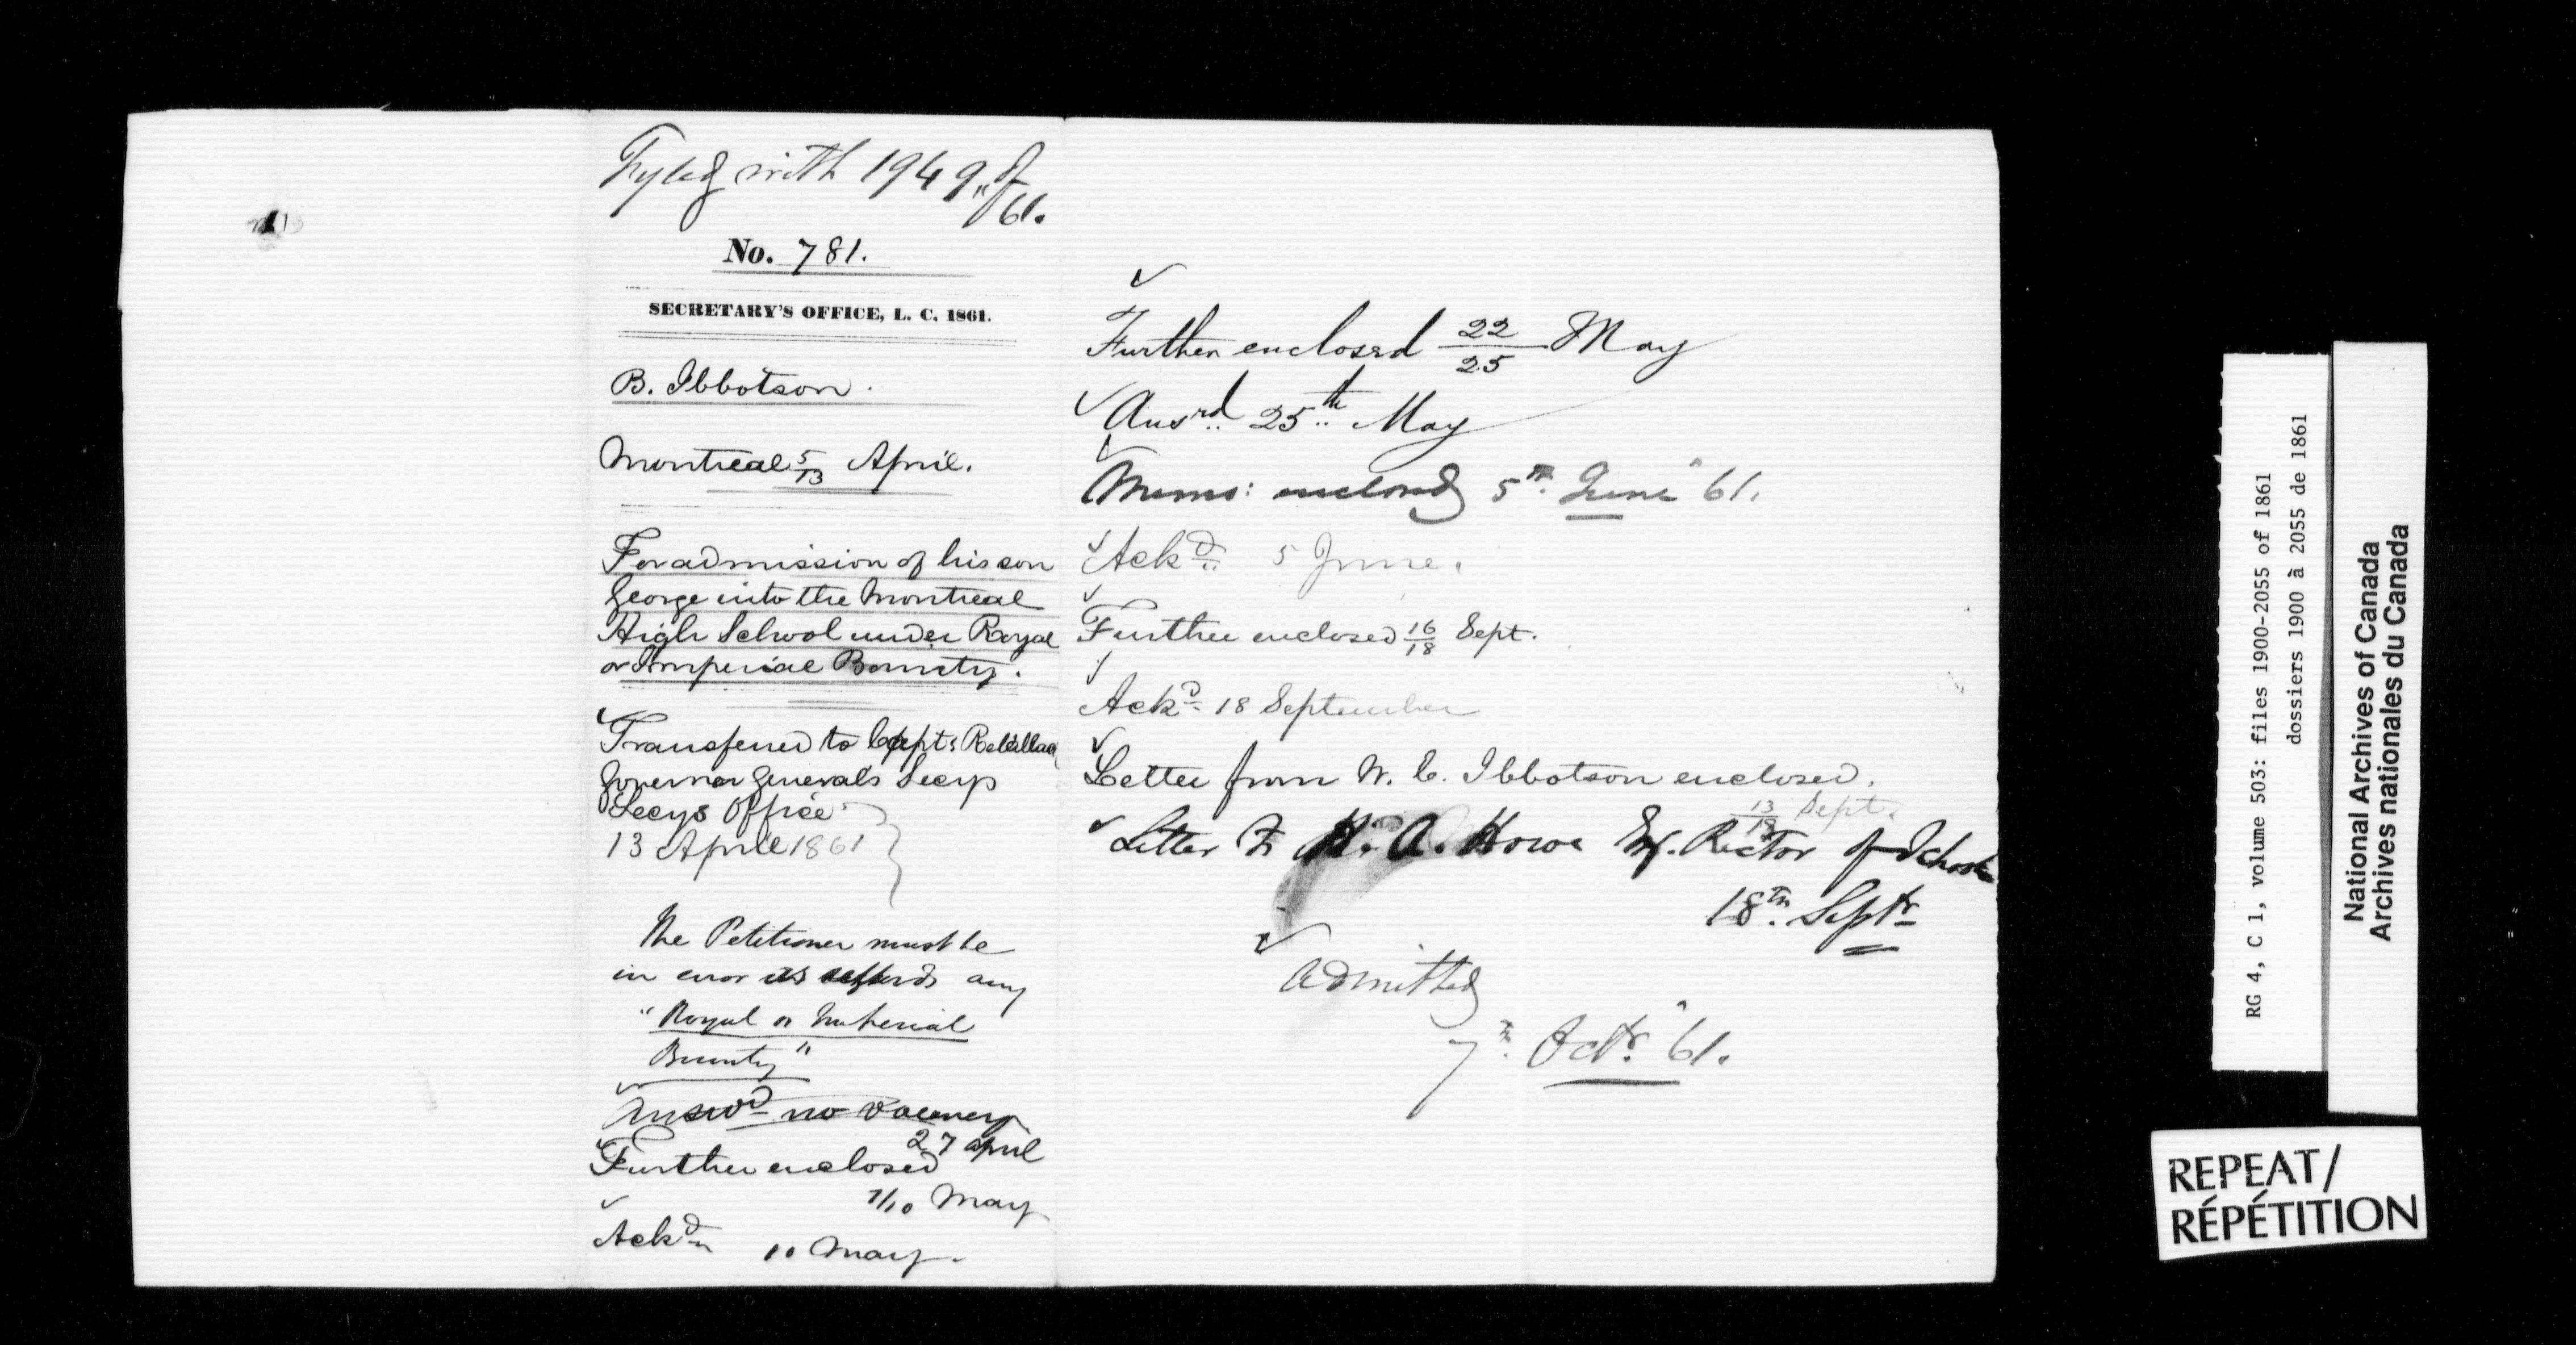 Fyled with 1949 of
61.
No. 781.
SECRETARY'S OFFICE, L. C. 1861.
B. Ibbotson.
Montreal 5/13 April.
For admission of his son
George into the Montreal
High School under Royal
or Imperial Bounty.
Transferred to Capt:
Governor General's Secy
Secys Office
13 April 1861
The Petitioner must be
in error as regards any
"Royal or Imperial
Bounty"
Answd no vacancy
27 april
Further enclosed
7/10 May
Ackd 10 May.
Further enclosed 22/25 May
Ansrd 25th May
Memo: enclosed 5th June 61.
Ackd 5 June.
Further enclosed 16/18 Sept.
Ackd 18 September
Letter from W. C. Ibbotson enclosed.
13/18 Sept.
Letter to H. A. Howe Esq. Rector of School
18th Septr
Admitted
7th Octr 61.
RG 4, C 1, volume 503: files 1900-2055 of 1861
dossiers 1900 à 2055 de 1861
National Archives of Canada
Archives nationales du Canada
REPEAT/
RÉPÉTITION